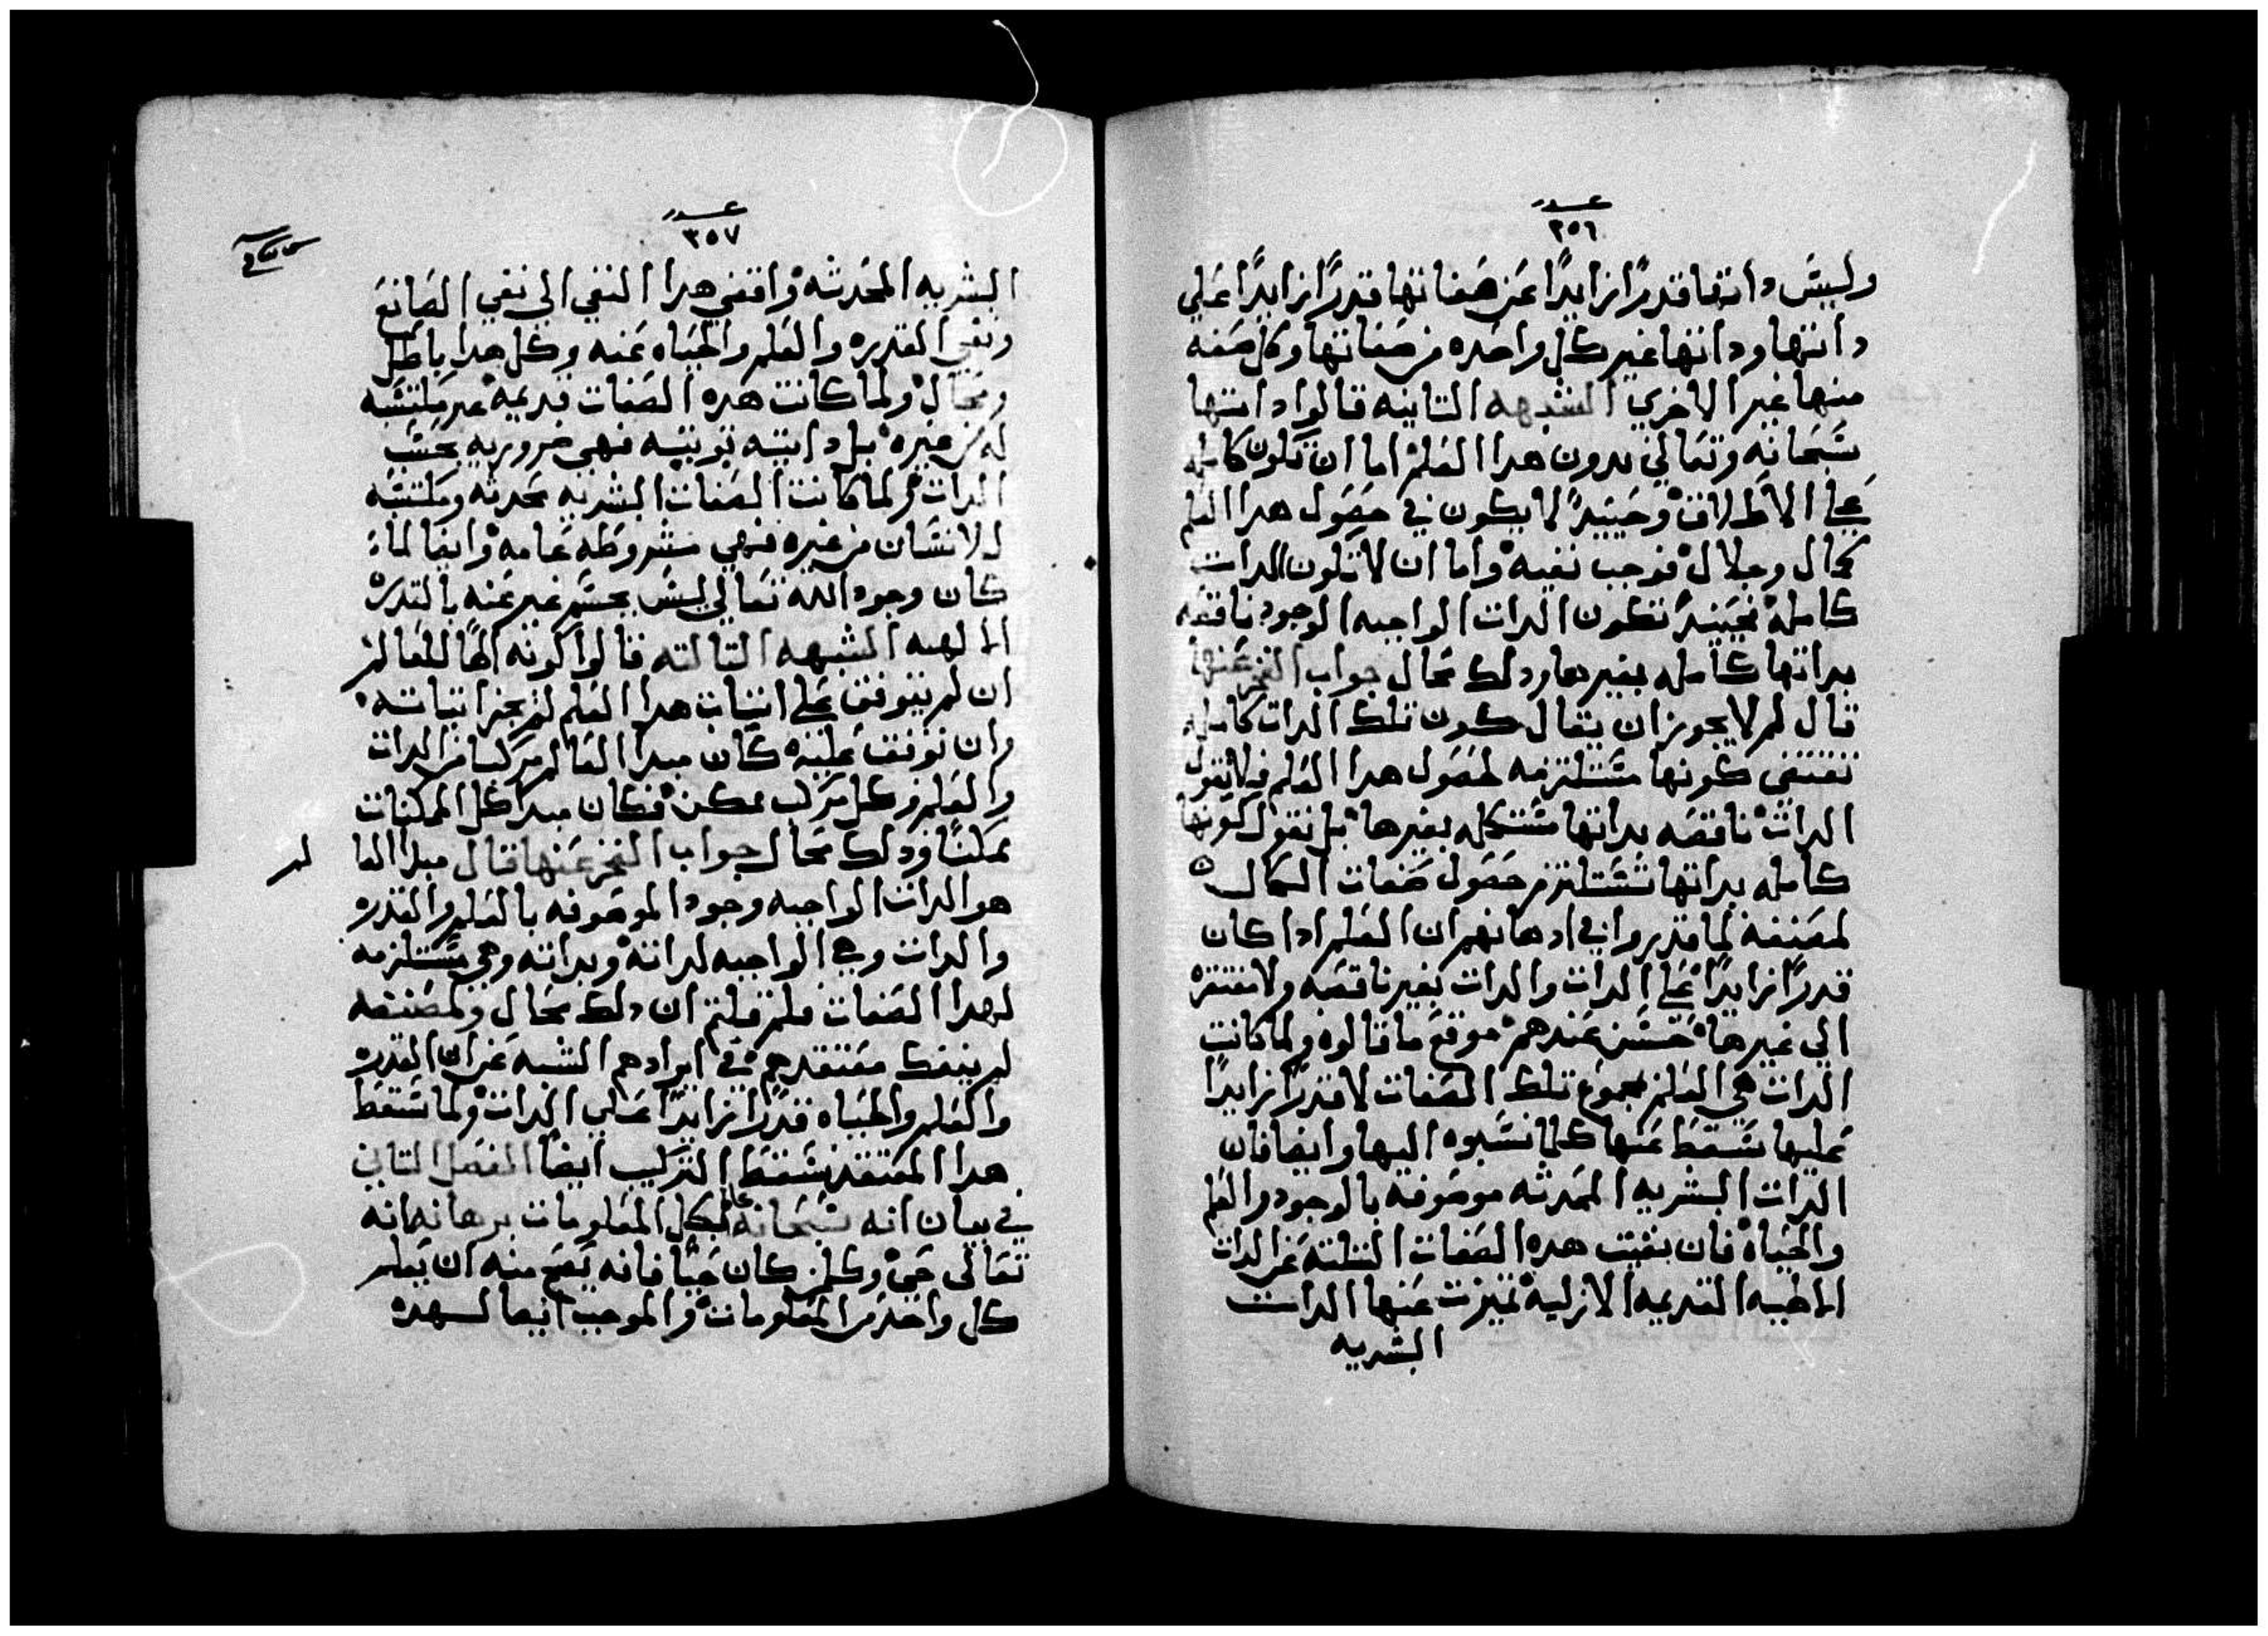 عدد
٣٥٦
وليس داتها قدرًا زايدًا عن صفاتها قدرًا زايدًا علي
داتها وداتها غير كل واحده من صفاتها وكل صفه
منها غير الاخري الشبهه التانيه قالوا داتها
سبحانه وتعالي بدون هدا العلم اما ان تكون كامله
علي الاطلاق وحينيدً لا يكون في حصول هدا العلم
كمال وجلال فوجب نفيه واما ان لا تكون الدات
كامله فحينيدً تكون الدات الواجبه الوجود ناقصه
بداتها كامله بغيرها ودلك محال جواب الفخر عنها
قال لم لا يجوز ان يقال كون تلك الدات كامله
تقتضي كونها مستلزمه لحصول هدا العلم فلا نقول
الدات ناقصه بداتها مستكمله بغيرها بل نقول كونها
كامله بداتها تستلزم حصول صفات الكمال
لمصنفه لما قدروا في ادهانهم ان العلم ادا كان
قدرًا زايدًا علي الدات والدات بغير ناقصه ولا مفتقره
الي غيرها حسن عندهم موقع ما قالوه ولما كانت
الدات هي العلم مجموع تلك الصفات لا قدرًا زايدًا
عليها سقط عنها كلما نسبوه اليها وايضا فان
الدات البشريه المحدثه موصوفه بالوجود والعلم
والحياه فان نفيت هده الصفات التلته عن الدات
الالهيه القديمه الازليه تميزت عنها الدات
البشريه
عدد
٣٥٧
البشريه المحدثه وافضي هدا النفي الي نفي الصانع
ونفي القدره والعلم والحياه عنه وكل هدا باطل
ومحال ولما كانت هده الصفات قديمه غير مكتسبه
له من غيره بل داتيه توبتيه فهي ضروريه بحسب
الدات ولما كانت الصفات البشريه محدثه ومكتسبه
للانسان من غيره فهي مشروطه عامه وايضا لما
كان وجود الله تعالي ليس بجسم غير عنه بالقدره
الالهيه الشبهه التالته قالوا كونه الهًا للعالم
ان لم يتوقف علي اتبات هدا العلم لم يجز اتباته
وان توقف عليه كان مبدا العالم مركبا من الدات
والعلم وكل مركب ممكن فكان مبدا كل الممكنات
ممكنًا ودلك محال جواب الفخر عنها قال مبدا العالم
هو الدات الواجبه وجود الموصوفه بالعلم والقدره
والدات وهي الواجبه لداته وبداته وهي مستلزمه
لهدا الصفات فلم قلتم ان دلك محال ولمصنفه
لم ينفك معتقدهم في ايرادهم الشبه عن ان القدره
والعلم والحياه قدرًا زايدًا علي الدات ولما سقط
هدا المعتقد سقط التركيب ايضًا الفصل التاني
في بيان انه سبحانه عالم بكل المعلومات برهانه انه
تعالي حي وكلمن كان حيًا فانه يصح منه ان يعلم
كل واحد من المعلومات والموجب ايضا لهده